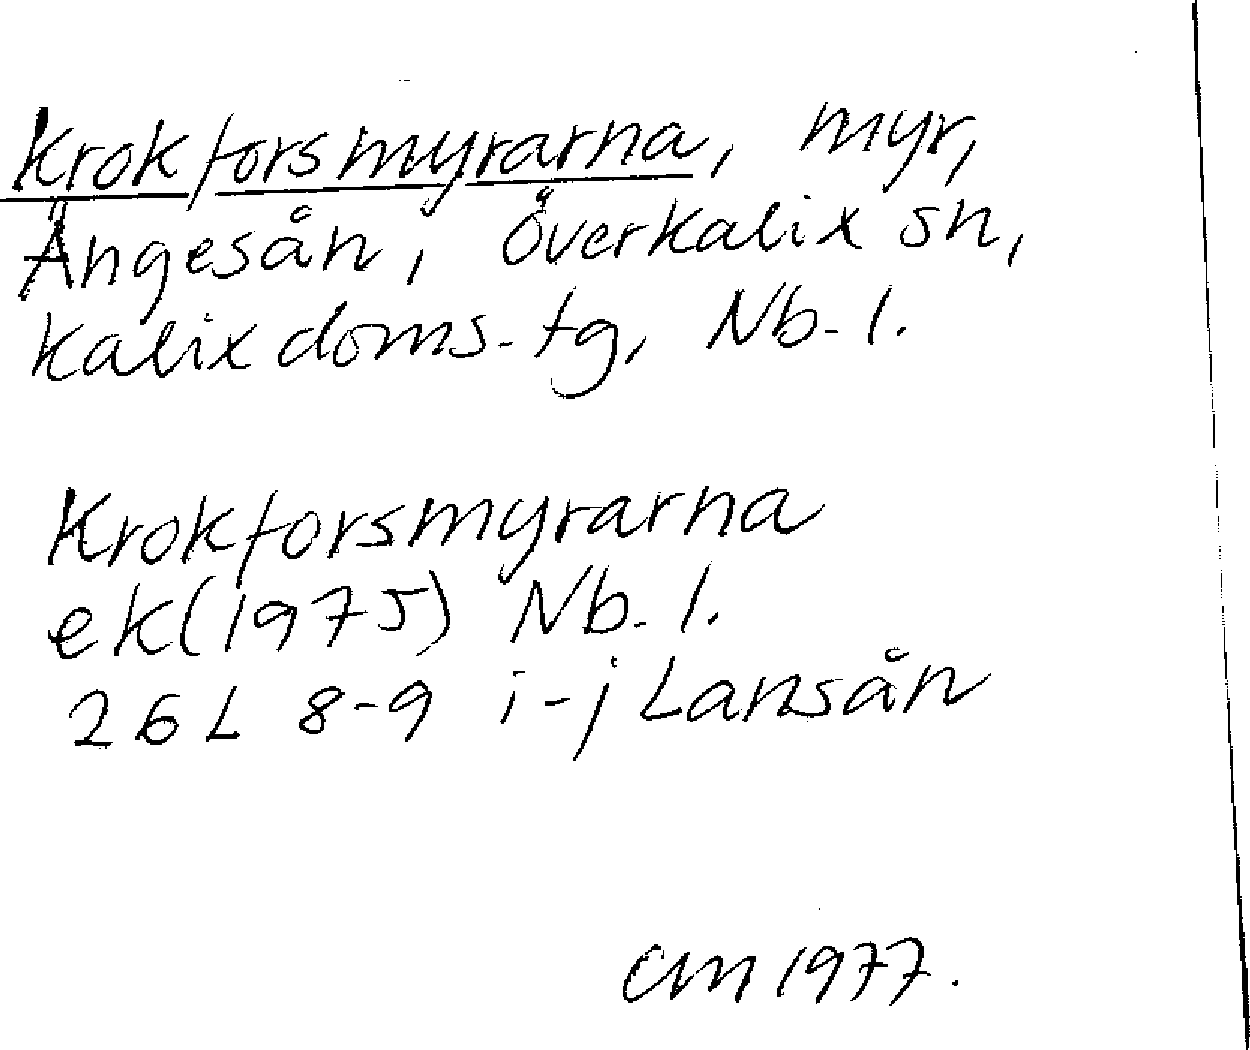 Krokforsmyrarna, myr,
Ängesån, Överkalix sn,
Kalix doms. tg, Nb. l.
Krokforsmyrarna
ek (1975) Nb. l.
26 L 8-9 i-j Lansån
CM 1977.